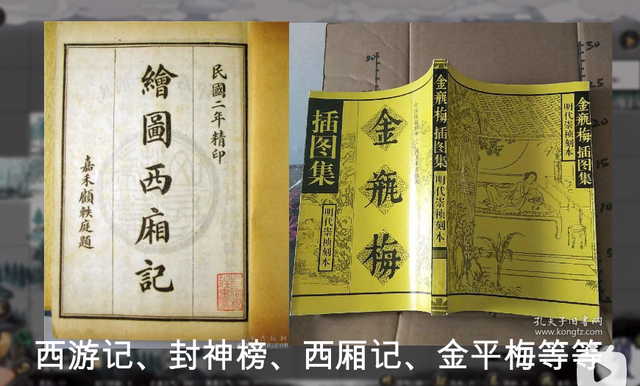 民國二年精印
繪圖西廂記
嘉禾顧帙庭題
插图集
明代崇祯刻本
金瓶梅
金瓶梅 插图集
明代崇祯刻本
金瓶梅插图集
明代崇祯刻本
孔夫子旧书网
www.kongfz.com
西游记、封神榜、西厢记、金平梅等等